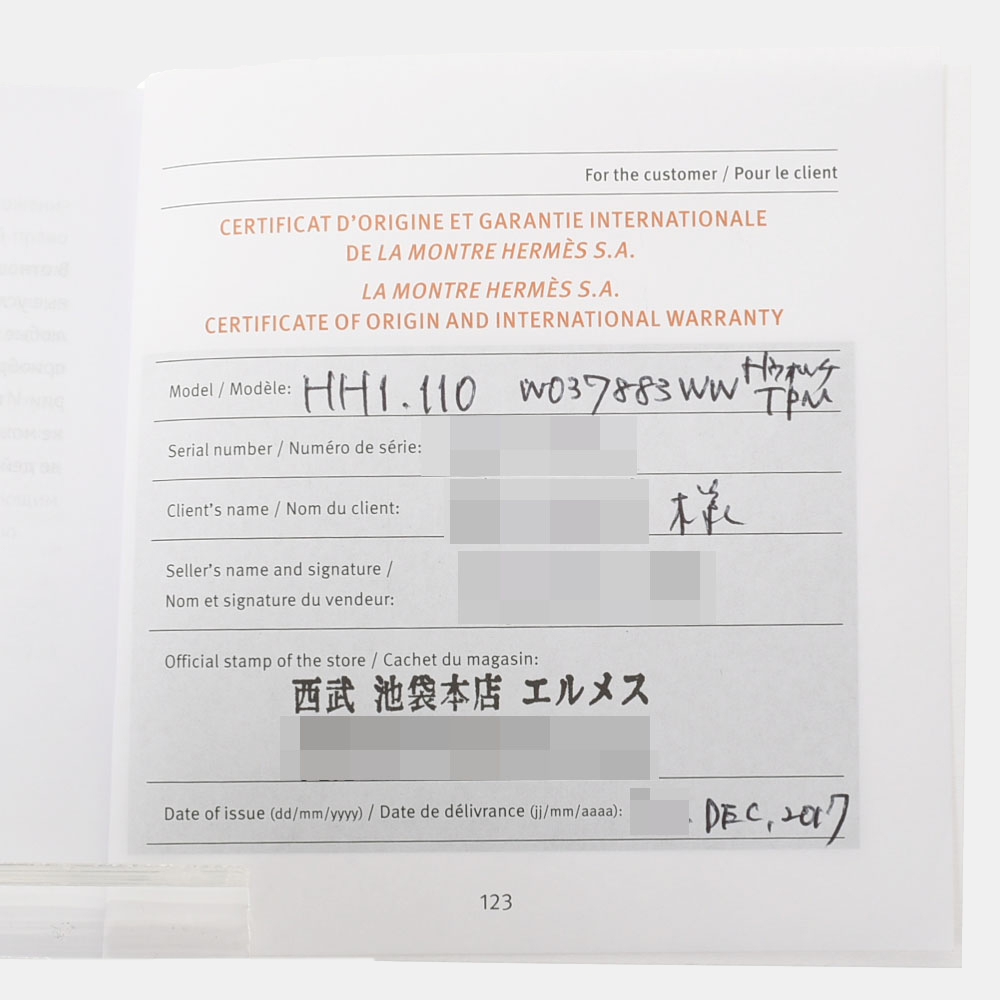 For the customer / Pour le client
CERTIFICAT D'ORIGINE ET GARANTIE INTERNATIONALE
DE LA MONTRE HERMÈS S.A.
LA MONTRE HERMÈS S.A.
CERTIFICATE OF ORIGIN AND INTERNATIONAL WARRANTY
Model / Modèle: HH1.110 W037883WW
TPM
Serial number / Numéro de série:
Client's name / Nom du client: 様
Seller's name and signature /
Nom et signature du vendeur:
Official stamp of the store / Cachet du magasin:
西武 池袋本店 エルメス
Date of issue (dd/mm/yyyy) / Date de délivrance (jj/mm/aaaa): . DEC, 2017
123